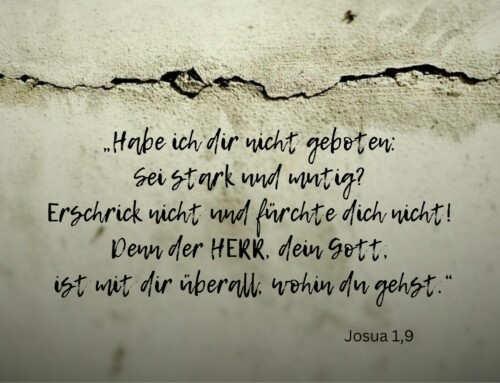 „Habe ich dir nicht geboten:
Sei stark und mutig?
Erschrick nicht und fürchte dich nicht!
Denn der HERR, dein Gott,
ist mit dir überall, wohin du gehst.“
Josua 1,9